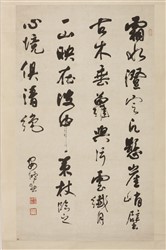 霜水澄定凡懸崖峭壁
古木垂蘿與片雲纖月
一山映在波中策杖臨之
心境俱清絕